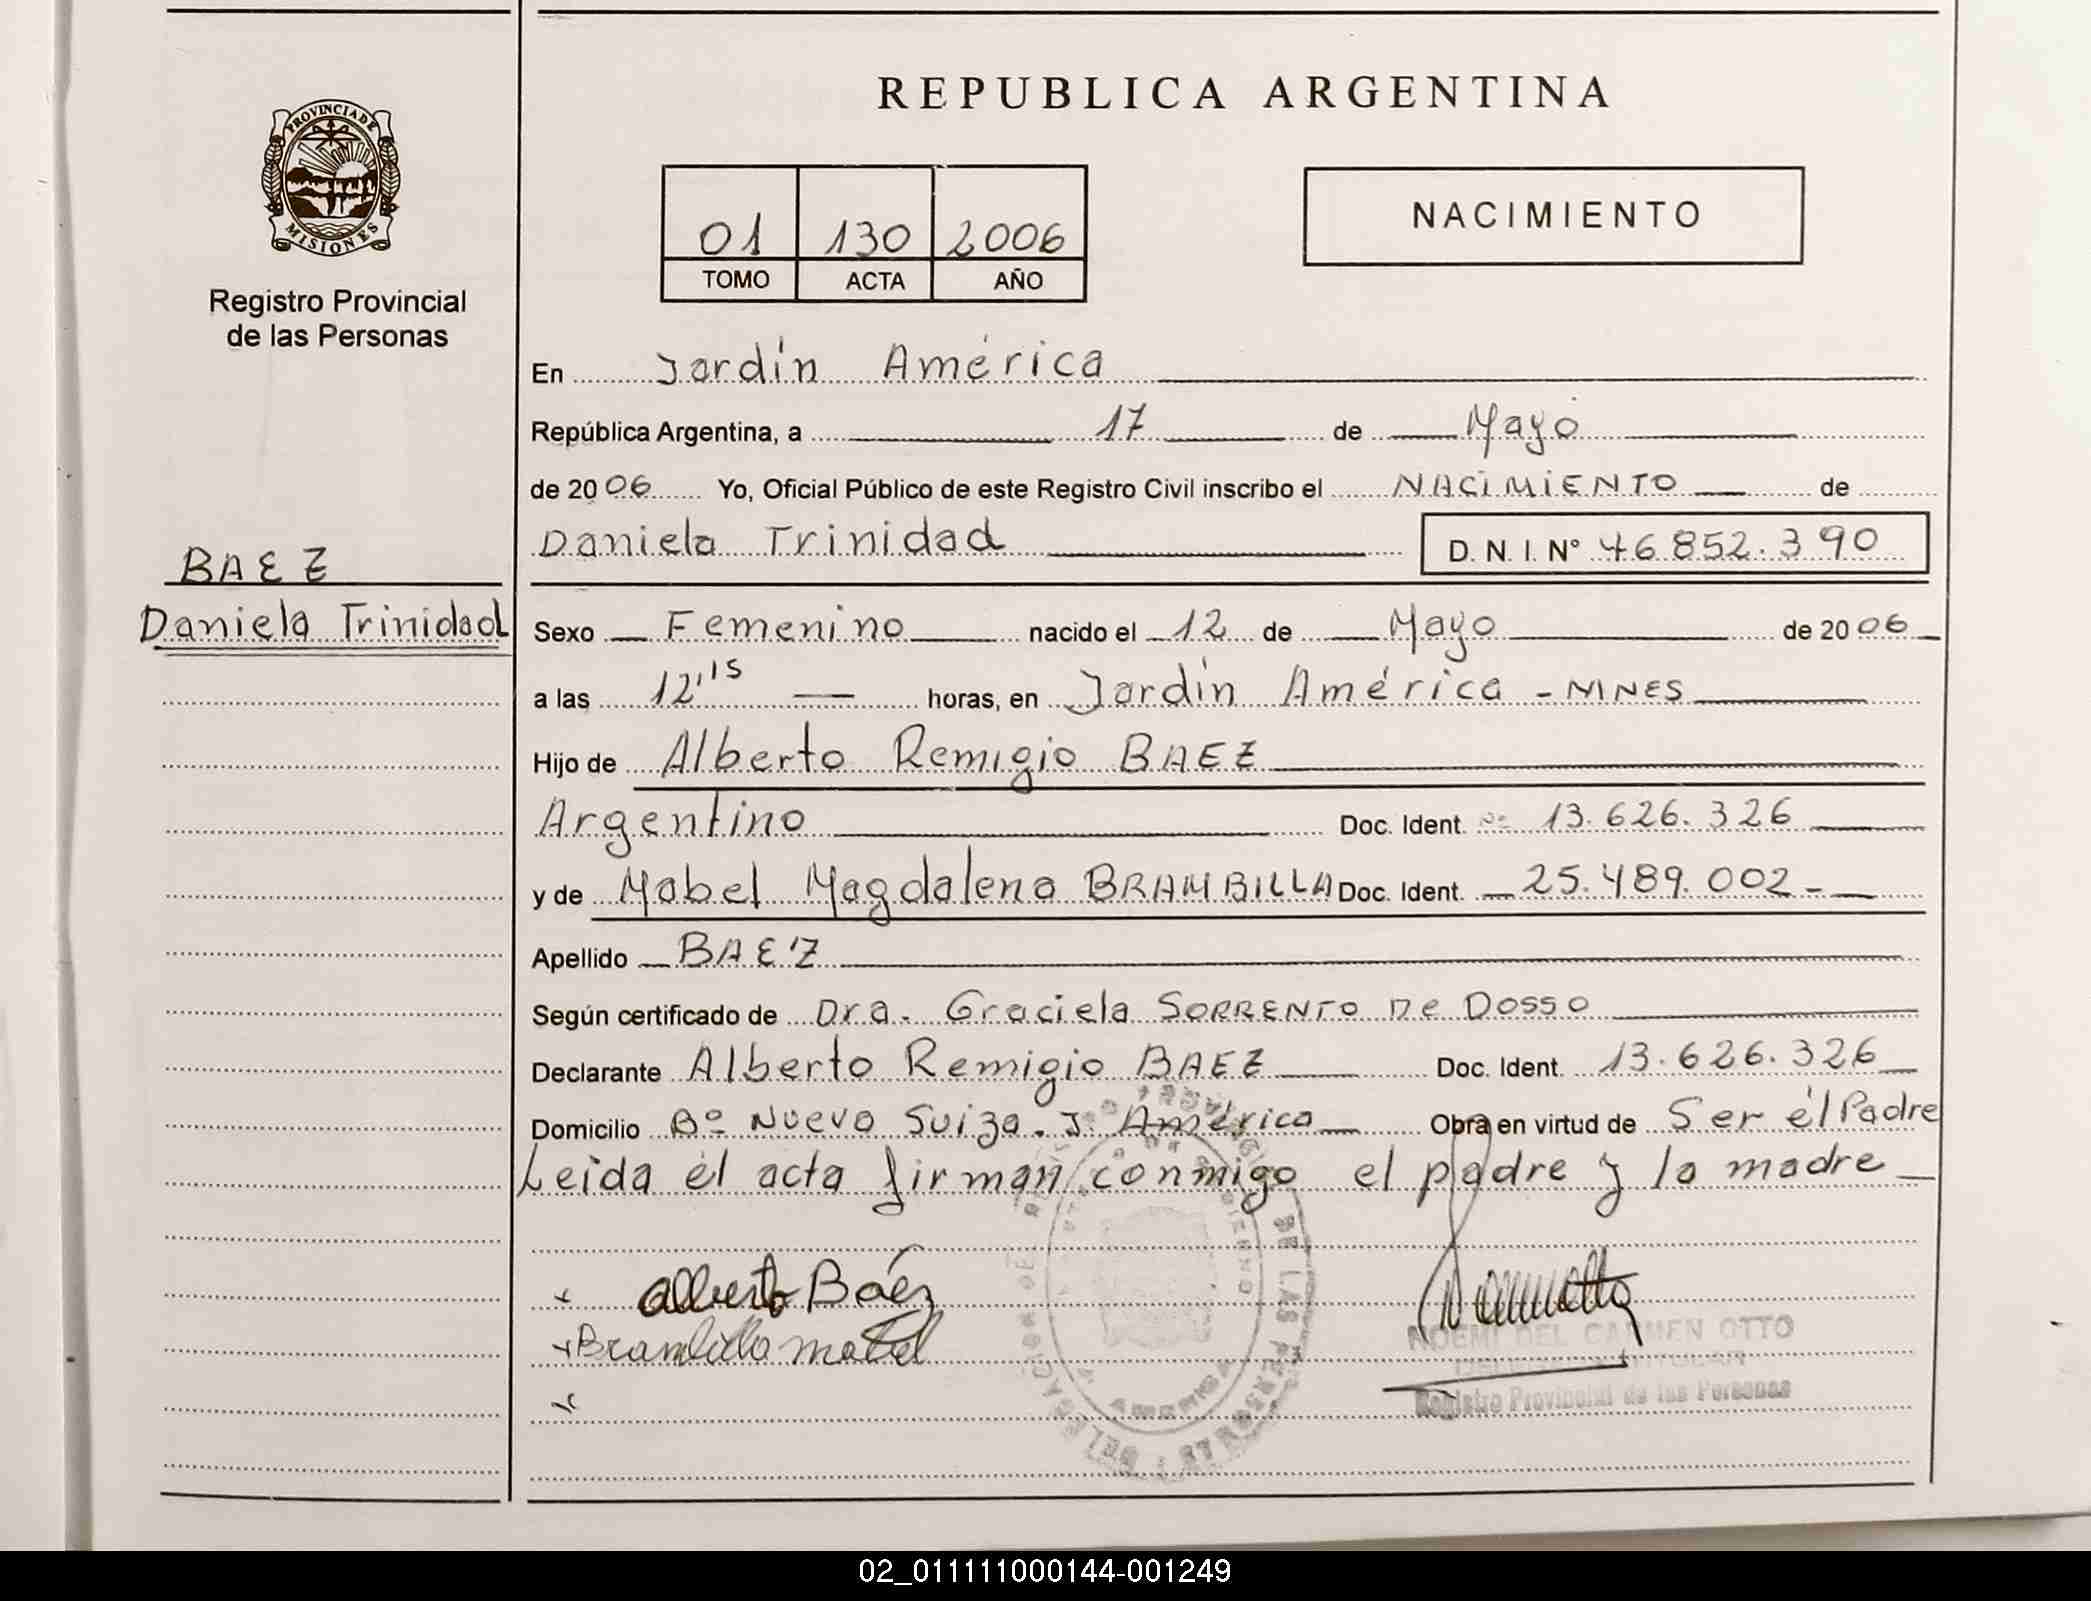 REPUBLICA ARGENTINA
PROVINCIA DE
MISIONES
Registro Provincial
de las Personas
01 130 2006
TOMO ACTA AÑO
NACIMIENTO
En Jardín América
República Argentina, a 17 de Mayo
de 2006 Yo, Oficial Público de este Registro Civil inscribo el NACIMIENTO de
Daniela Trinidad D. N. I. Nº 46.852.390
BAEZ
Daniela Trinidad
Sexo Femenino nacido el 12 de Mayo de 2006
a las 12,15 horas, en Jardín América - MNES
Hijo de Alberto Remigio BAEZ
Argentino Doc. Ident. 13.626.326
y de Mabel Magdalena BRAMBILLA Doc. Ident. 25.489.002-
Apellido BAEZ
Según certificado de Dra. Graciela SORRENTO De DOSSO
Declarante Alberto Remigio BAEZ Doc. Ident. 13.626.326
Domicilio Bº Nuevo Suiza. J. América Obra en virtud de Ser él Padre
Leída él acta firman conmigo el padre y la madre
Alberto Báez
Brambilla Mabel
NOEMI DEL CARMEN OTTO
TITULAR
Registro Provincial de las Personas
DELEGACION DE LAS PERSONAS
02_011111000144-001249